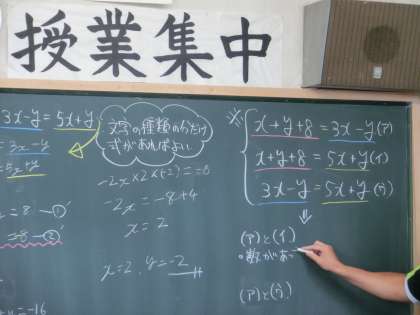 授業集中
3x-y=5x+y
=3x-y
=5x+y
=8-①
=8-②
=-16
文字の種類のかだけ
式があればよい
-2x=-8+4
x=2
x=2, y=-2
※
x+y+8=3x-y(ア)
x+y+8=5x+y(イ)
3x-y=5x+y(ウ)
⇓
(ア)と(イ)
・数があっ
(ア)と(ウ)